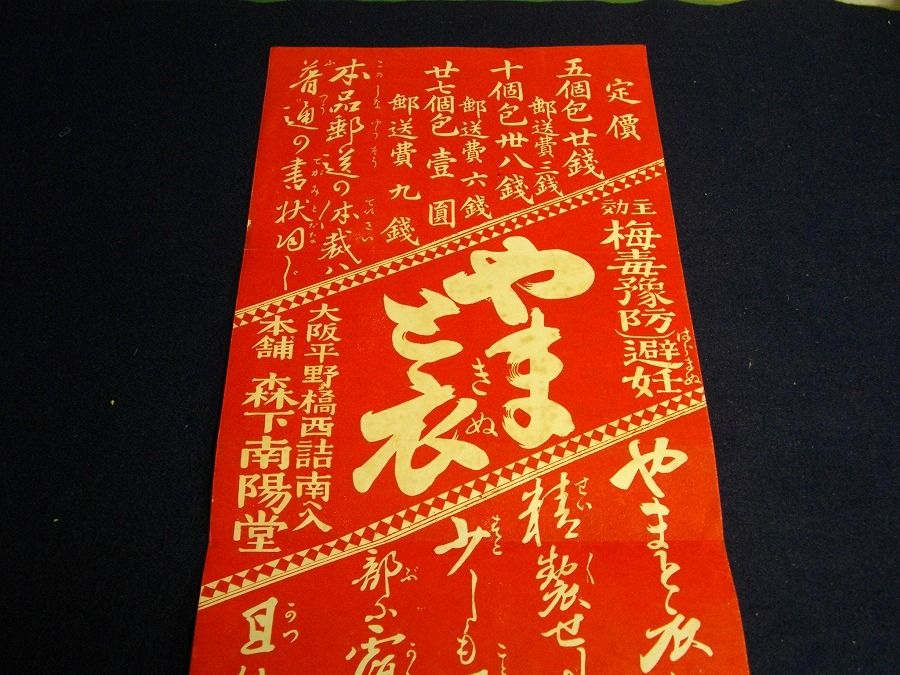 定價
五個包 廿錢
郵送費三錢
十個包 卅八錢
郵送費六錢
廿七個包 壹圓
郵送費九錢
本品郵送の体裁ハ
普通の書状同じ
主効 梅毒豫防避妊
やまと衣
大阪平野橋西詰南へ入
本舗 森下南陽堂
やまと衣
精製せ
少しも
部
且